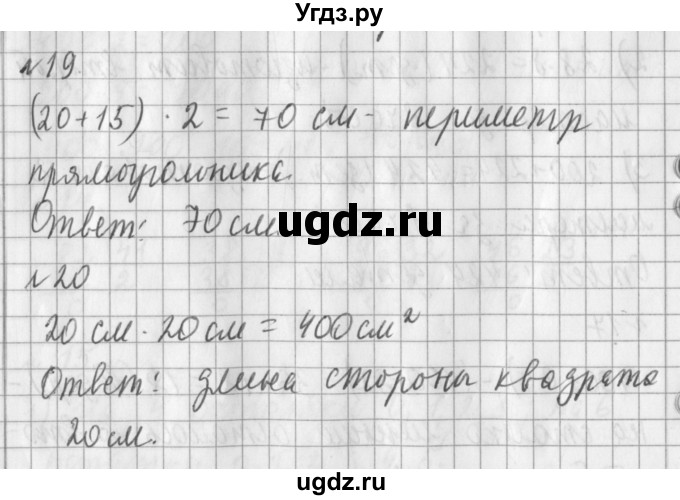 Угдз.ру
№19
(20+15) · 2 = 70 см - периметр
прямоугольника.
Ответ: 70 см.
ugdz.ru
№20
20 см · 20 см = 400 см²
Ответ: длина стороны квадрата
20 см.
ugdz.ru